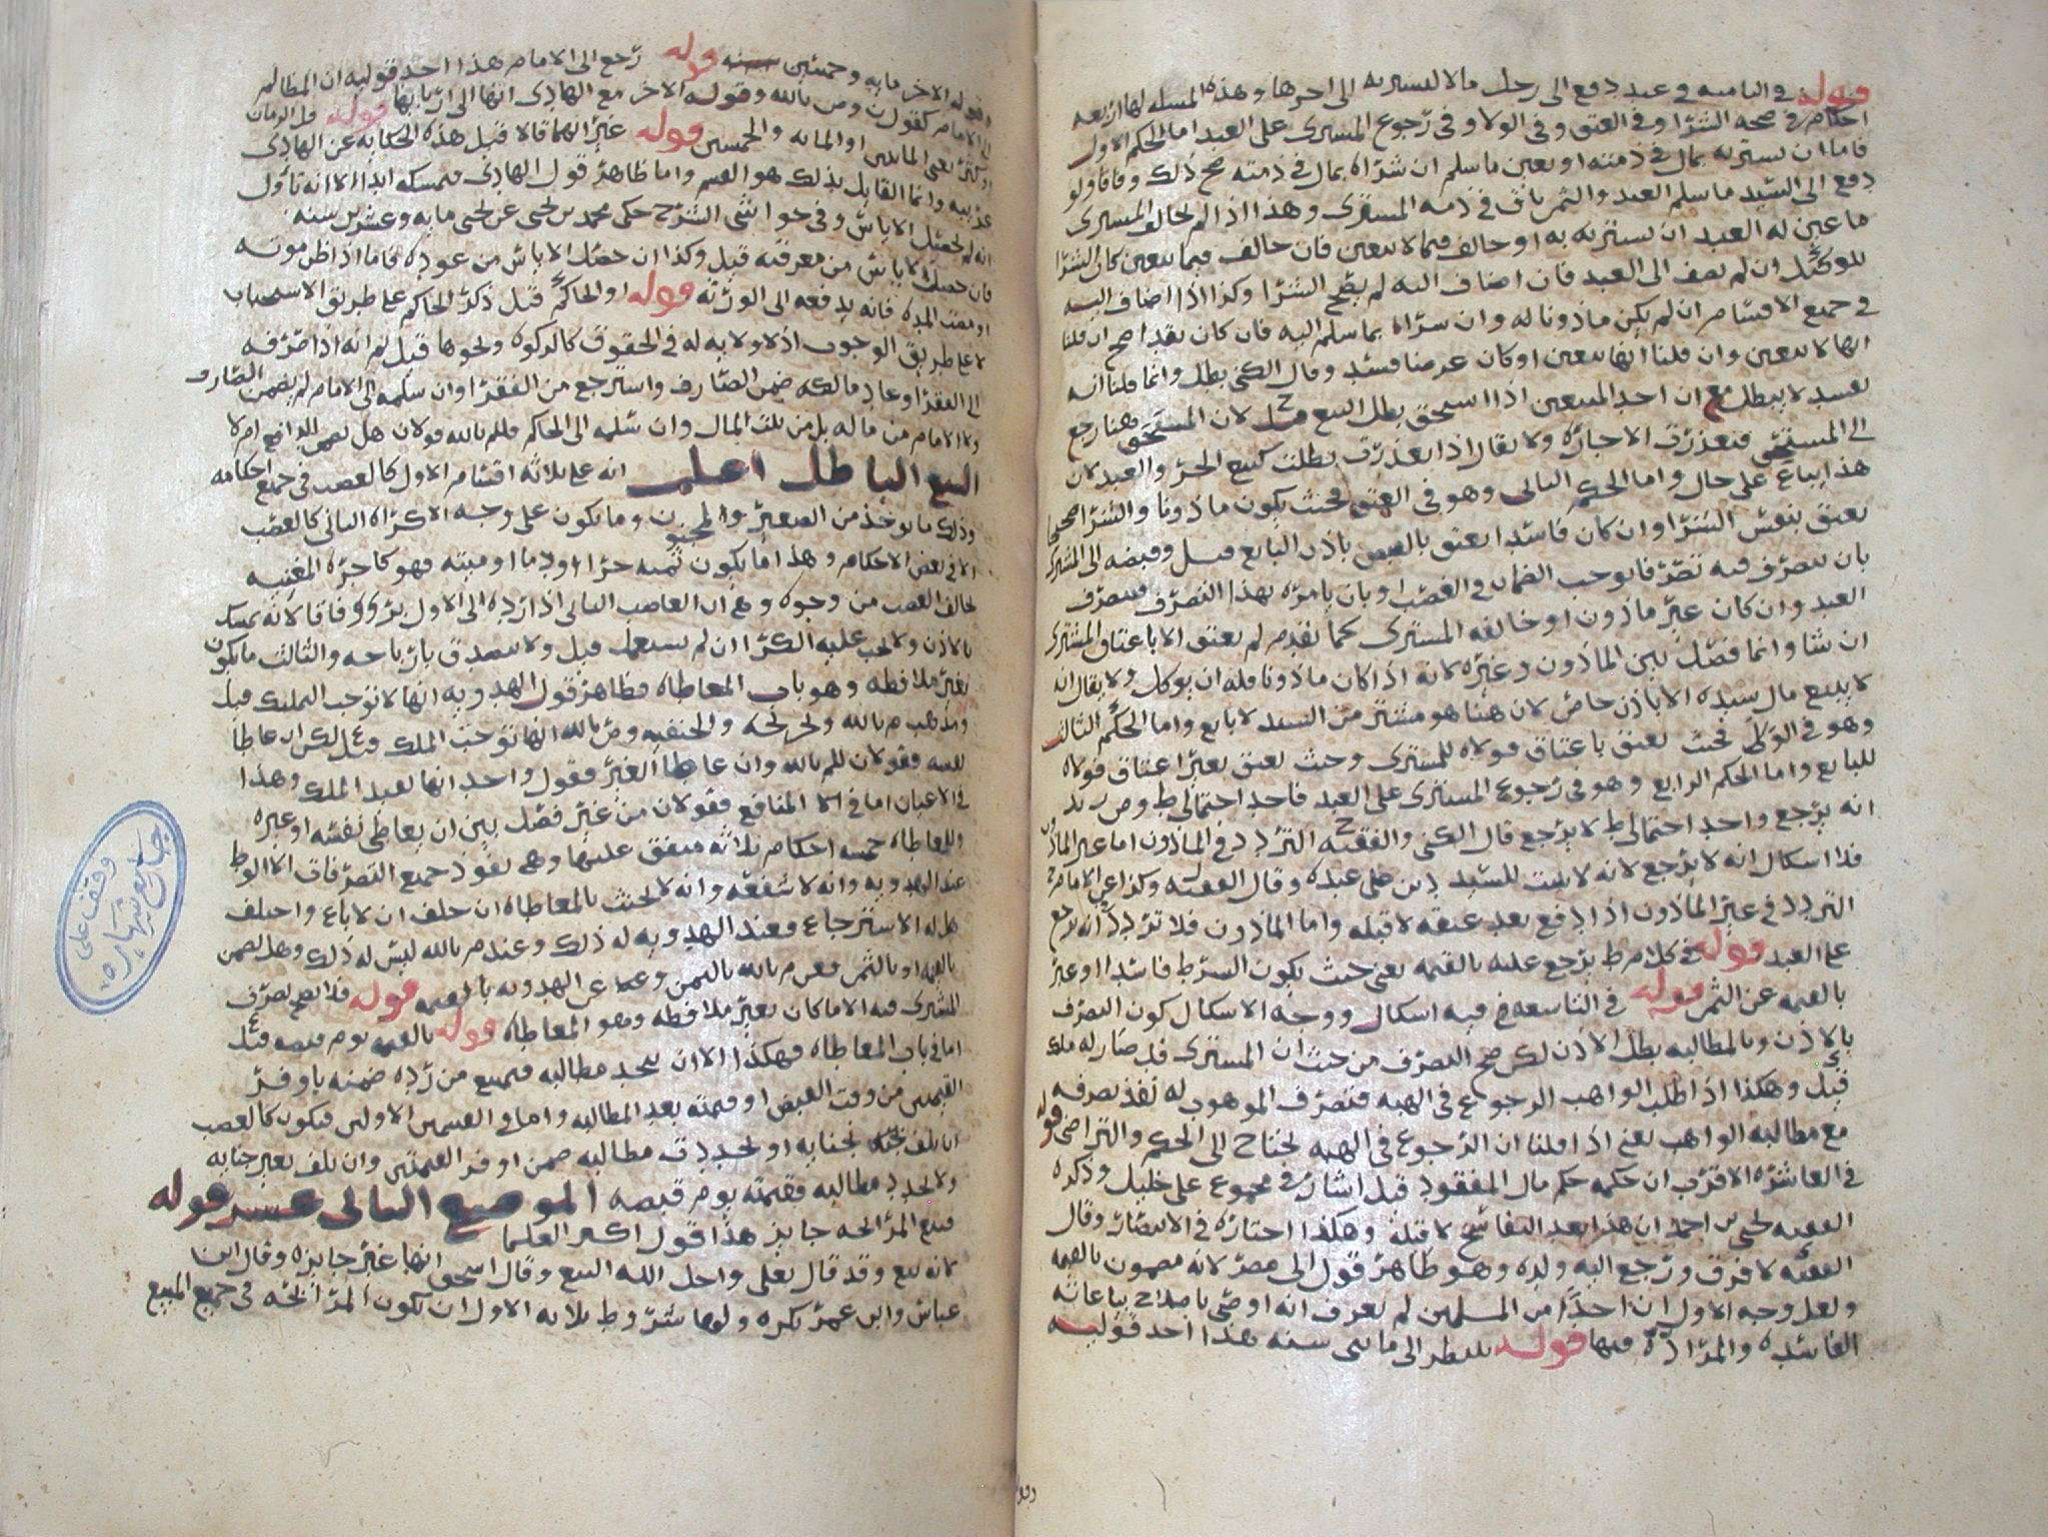 قوله في الثامنة في عبد دفع الى رجل مالا ليشتريه الى اخرها وهذه المسلة لها اربعة
احكام في صحة الشرا وفي العتق وفي الولا وفي رجوع المشتري على العبد اما الحكم الاول
فاما ان يشتريه بمال في ذمته او بعين ما سلم ان شراه بمال في ذمته صح ذلك وفاقا ولو
دفع الى السيد ما سلم العبد والثمن باق في ذمة المشتري وهذا اذا لم يخالف المشتري
ما عين له العبد ان يشتريه به او خالف فيما لا يتعين فان خالف فيما يتعين كان الشرا
للموكل ان لم يضف الى العبد فان اضاف اليه لم يصح الشرا وكذا اذا اضاف اليه
في جميع الاقسام ان لم يكن ماذونا له وان شراه بما سلم اليه فان كان نقدا صح ان قلنا
انها لا تتعين وان قلنا انها تتعين او كان عرضا فسد وقال الكني بطل وانما قلنا انه
يفسد لا يبطل مع ان احد المبيعين اذا استحق بطل البيع قيل ح لان المستحق هنا رجع
الى المستحق فتعذرت الاجازة ولا يقال اذا تعذرت بطلت كبيع الحر والعبد لان
هذا يباع على حال واما الحكم الثاني وهو في العتق فحيث يكون ماذونا والشرا صحيحا
يعتق بنفس الشرا وان كان فاسدا يعتق بالقبض باذن البايع قيل وقبضه الى المشتري
بان يتصرف فيه تصرفا يوجب الضمان في الغصب او بان يامره بهذا التصرف فيتصرف
العبد وان كان غير ماذون او خالفه المشتري كما تقدم لم يعتق الا باعتاق المشتري
ان شا وانما فصل بين الماذون وغيره لانه اذا كان ماذونا فله ان يوكل ولا يقال انه
لا يبيع مال سيده الا باذن خاص لان هنا هو مشتر من السيد لا بايع واما الحكم الثالث
وهو في الولا فحيث يعتق باعتاق فولاه للمشتري وحيث يعتق بغير اعتاق فولاه
للبايع واما الحكم الرابع وهو في رجوع المشتري على العبد فاحد احتمالي ط وص
انه يرجع واحد احتمالي ط لا يرجع قال الكني والفقيه ح التردد في الماذون اما غير الماذون
فلا اشكال انه لا يرجع لانه لا يثبت للسيد دين على عبده وقال الفقيه ل وكذا عن الامام ح
التردد في غير الماذون اذا دفع بعد عتقه لا قبله واما الماذون فلا تردد انه يرجع
على العبد قوله في كلام ط يرجع عليه بالقيمة يعني حيث يكون الشرط فاسدا او عبر
بالقيمة عن الثمن قوله في التاسعة فيه اشكال ووجه الاشكال كون التصرف
بالاذن وبالمطالبة بطل الاذن لكن صح التصرف من حيث ان المشتري قد صار له ملك
قيل وهكذا اذا طلب الواهب الرجوع في الهبة فتصرف الموهوب له نفذ تصرفه
مع مطالبة الواهب يعني اذا قلنا ان الرجوع في الهبة يحتاج الى الحكم والتراضي قوله
في العاشرة الاقرب ان حكمه حكم مال المفقود قيل اشار في مجموع علي خليل وذكره
الفقيه يحيى بن احمد ان هذا بعد التفاسخ لا قبله وهكذا اختاره في الانتصار وقال
الفقيه لا فرق ورجع اليه ولده وهو ظاهر قول ابي مضر لانه مضمون بالقيمة
ولعل وجه الاول ان احدا من المسلمين لم يعرف انه اوصى باصلاح بياعاته
الفاسدة والمراددة فيها قوله ينتظر الى مايتي سنة هذا احد قوليه
وقوله الاخر ماية وخمسين سنة قوله رجع الى الامام هذا احد قوليه ان المظالم
الى الامام كقول ن وص بالله وقوله الاخر مع الهادي انها الى اربابها قوله قل الزمان
او كثر يعني المايتين او الماية والخمسين قوله غير انهما قالا قيل هذه الحكاية عن الهادي
غريبة وانما القايل بذلك هو القسم واما ظاهر قول الهادي فيمسكه ابدا الا انه تاول
انه لم يحصل الاياس وفي حواشي الشرح حكى محمد بن يحيى عن يحيى ماية وعشرين سنة
فان حصل الاياس من معرفته قيل وكذا ان حصل الاياس من عوده فاما اذا ظن موته
او مضت المدة فانه يدفعه الى الورثة قوله او الحاكم قيل ذكر الحاكم على طريق الاستحباب
لا على طريق الوجوب اذ لا ولاية له في الحقوق كالزكوة ونحوها قيل ثم انه اذا صرفه
الى الفقرا وعاد مالكه ضمن الصارف واسترجع من الفقرا وان سلمه الى الامام لم يضمن الصارف
ولا الامام من ماله بل من بيت المال وان سلمه الى الحاكم فللم بالله قولان هل يضمن الدافع ام لا
البيع الباطل اعلم انه على ثلاثة اقسام الاول كالغصب في جميع احكامه
وذلك ما يوخذ من الصغير والمجنون وما يكون على وجه الاكراه الثاني كالغصب
الا في بعض الاحكام وهذا ما يكون ثمنه حرا او دما او ميتة فهو كاجرة المغنية
يخالف الغصب من وجوه وهي ان الغاصب الثاني اذا رده الى الاول بري وفاقا لانه يمسك
بالاذن ولا يجب عليه الكرا ان لم يستعمل قيل ولا يتصدق بارباحه والثالث ما يكون
بغير ملافظة وهو باب المعاطاة فظاهر قول الهدوية انها لا توجب التمليك قيل
ومذهب م بالله والحنفية وص بالله انها توجب الملك قيل ع لكن ان عاطا
لنفسه فقولان للم بالله وان عاطا لغيره فقول واحد انها تفيد الملك وهذا
في الاعيان اما في المنافع فقولان من غير فصل بين ان يعاطي نفسه او غيره
وللمعاطاة خمسة احكام ثلاثة متفق عليها وهي نفوذ جميع التصرفات الا الوطي
عند الهدوية وانه لا شفعة وانه لا يحنث بالمعاطاة ان حلف ان لا باع واختلف
هل له الاسترجاع فعند الهدوية له ذلك وعند م بالله ليس له ذلك وهل يضمن
بالقيمة او بالثمن فعن م بالله بالثمن وعن الهدوية بالقيمة قوله فلا يصح تصرف
المشتري فيه الا ما كان بغير ملافظة وهو المعاطاة قوله بالقيمة يوم قبضه قيل ع
اما في باب المعاطاة فهكذا الا ان يجدد مطالبة فيمتنع من رده ضمنه باوفر
القيمتين من وقت القبض او قيمته بعد المطالبة واما في القسمين الاولين فيكون كالغصب
ان تلف بجناية او تجددت مطالبة ضمن اوفر القيمتين وان تلف بغير جناية
ولا تجدد مطالبة فقيمته يوم قبضه الموضع الثاني عشر قوله
فبيع المرابحة جايز هذا قول اكثر العلما
لانه بيع وقد قال تعلى واحل الله البيع وقال اسحق انها غير جايزة وقال ابن
عباس وابن عمر يكره ولها شروط ثلاثة الاول ان تكون المرابحة في جميع المبيع
وقف على
جامع شهاره